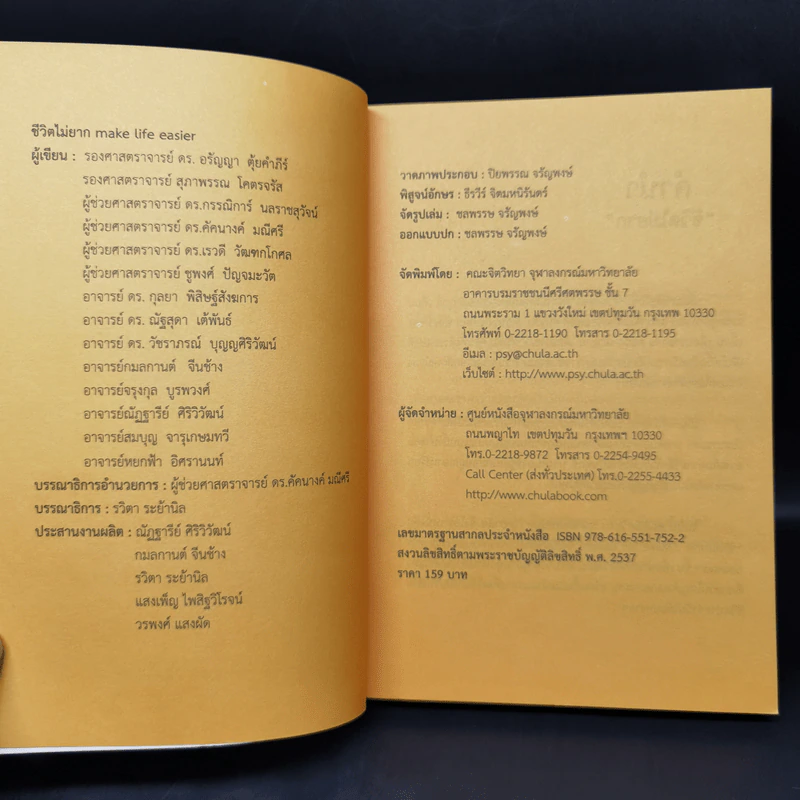 ชีวิตไม่ยาก make life easier
ผู้เขียน : รองศาสตราจารย์ ดร. อรัญญา ตุ้ยคำภีร์
รองศาสตราจารย์ สุภาพรรณ โคตรจรัส
ผู้ช่วยศาสตราจารย์ ดร.กรรณิการ์ นลราชสุวัจน์
ผู้ช่วยศาสตราจารย์ ดร.คัคนางค์ มณีศรี
ผู้ช่วยศาสตราจารย์ ดร.เรวดี วัฒฑกโกศล
ผู้ช่วยศาสตราจารย์ ชูพงศ์ ปัญจมะวัต
อาจารย์ ดร. กุลยา พิสิษฐ์สังฆการ
อาจารย์ ดร. ณัฐสุดา เต้พันธ์
อาจารย์ ดร. วัชราภรณ์ บุญญศิริวัฒน์
อาจารย์กมลกานต์ จีนช้าง
อาจารย์จรุงกุล บูรพวงศ์
อาจารย์ณัฏฐารีย์ ศิริวิวัฒน์
อาจารย์สมบุญ จารุเกษมทวี
อาจารย์หยกฟ้า อิศรานนท์
บรรณาธิการอำนวยการ : ผู้ช่วยศาสตราจารย์ ดร.คัคนางค์ มณีศรี
บรรณาธิการ : รวิตา ระย้านิล
ประสานงานผลิต : ณัฏฐารีย์ ศิริวิวัฒน์
กมลกานต์ จีนช้าง
รวิตา ระย้านิล
แสงเพ็ญ ไพสิฐวิโรจน์
วรพงศ์ แสงผัด
วาดภาพประกอบ : ปิยพรรณ จรัญพงษ์
พิสูจน์อักษร : ธีรวีร์ จิตมหนิรันดร์
จัดรูปเล่ม : ชลพรรษ จรัญพงษ์
ออกแบบปก : ชลพรรษ จรัญพงษ์
จัดพิมพ์โดย : คณะจิตวิทยา จุฬาลงกรณ์มหาวิทยาลัย
อาคารบรมราชชนนีศรีศตพรรษ ชั้น 7
ถนนพระราม 1 แขวงวังใหม่ เขตปทุมวัน กรุงเทพ 10330
โทรศัพท์ 0-2218-1190 โทรสาร 0-2218-1195
อีเมล : psy@chula.ac.th
เว็บไซต์ : http://www.psy.chula.ac.th
ผู้จัดจำหน่าย : ศูนย์หนังสือจุฬาลงกรณ์มหาวิทยาลัย
ถนนพญาไท เขตปทุมวัน กรุงเทพฯ 10330
โทร.0-2218-9872 โทรสาร 0-2254-9495
Call Center (ส่งทั่วประเทศ) โทร.0-2255-4433
http://www.chulabook.com
เลขมาตรฐานสากลประจำหนังสือ ISBN 978-616-551-752-2
สงวนลิขสิทธิ์ตามพระราชบัญญัติลิขสิทธิ์ พ.ศ. 2537
ราคา 159 บาท